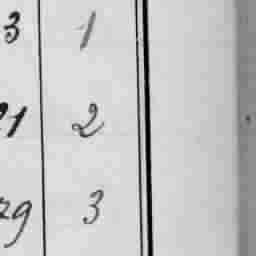 3 1
21 2
29 3